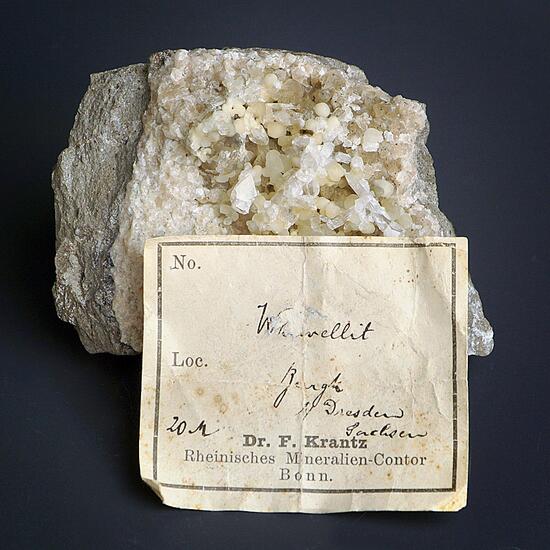 No.
Whewellit
Loc.
Burgk
b/ Dresden
Sachsen
20 M
Dr. F. Krantz
Rheinisches Mineralien-Contor
Bonn.